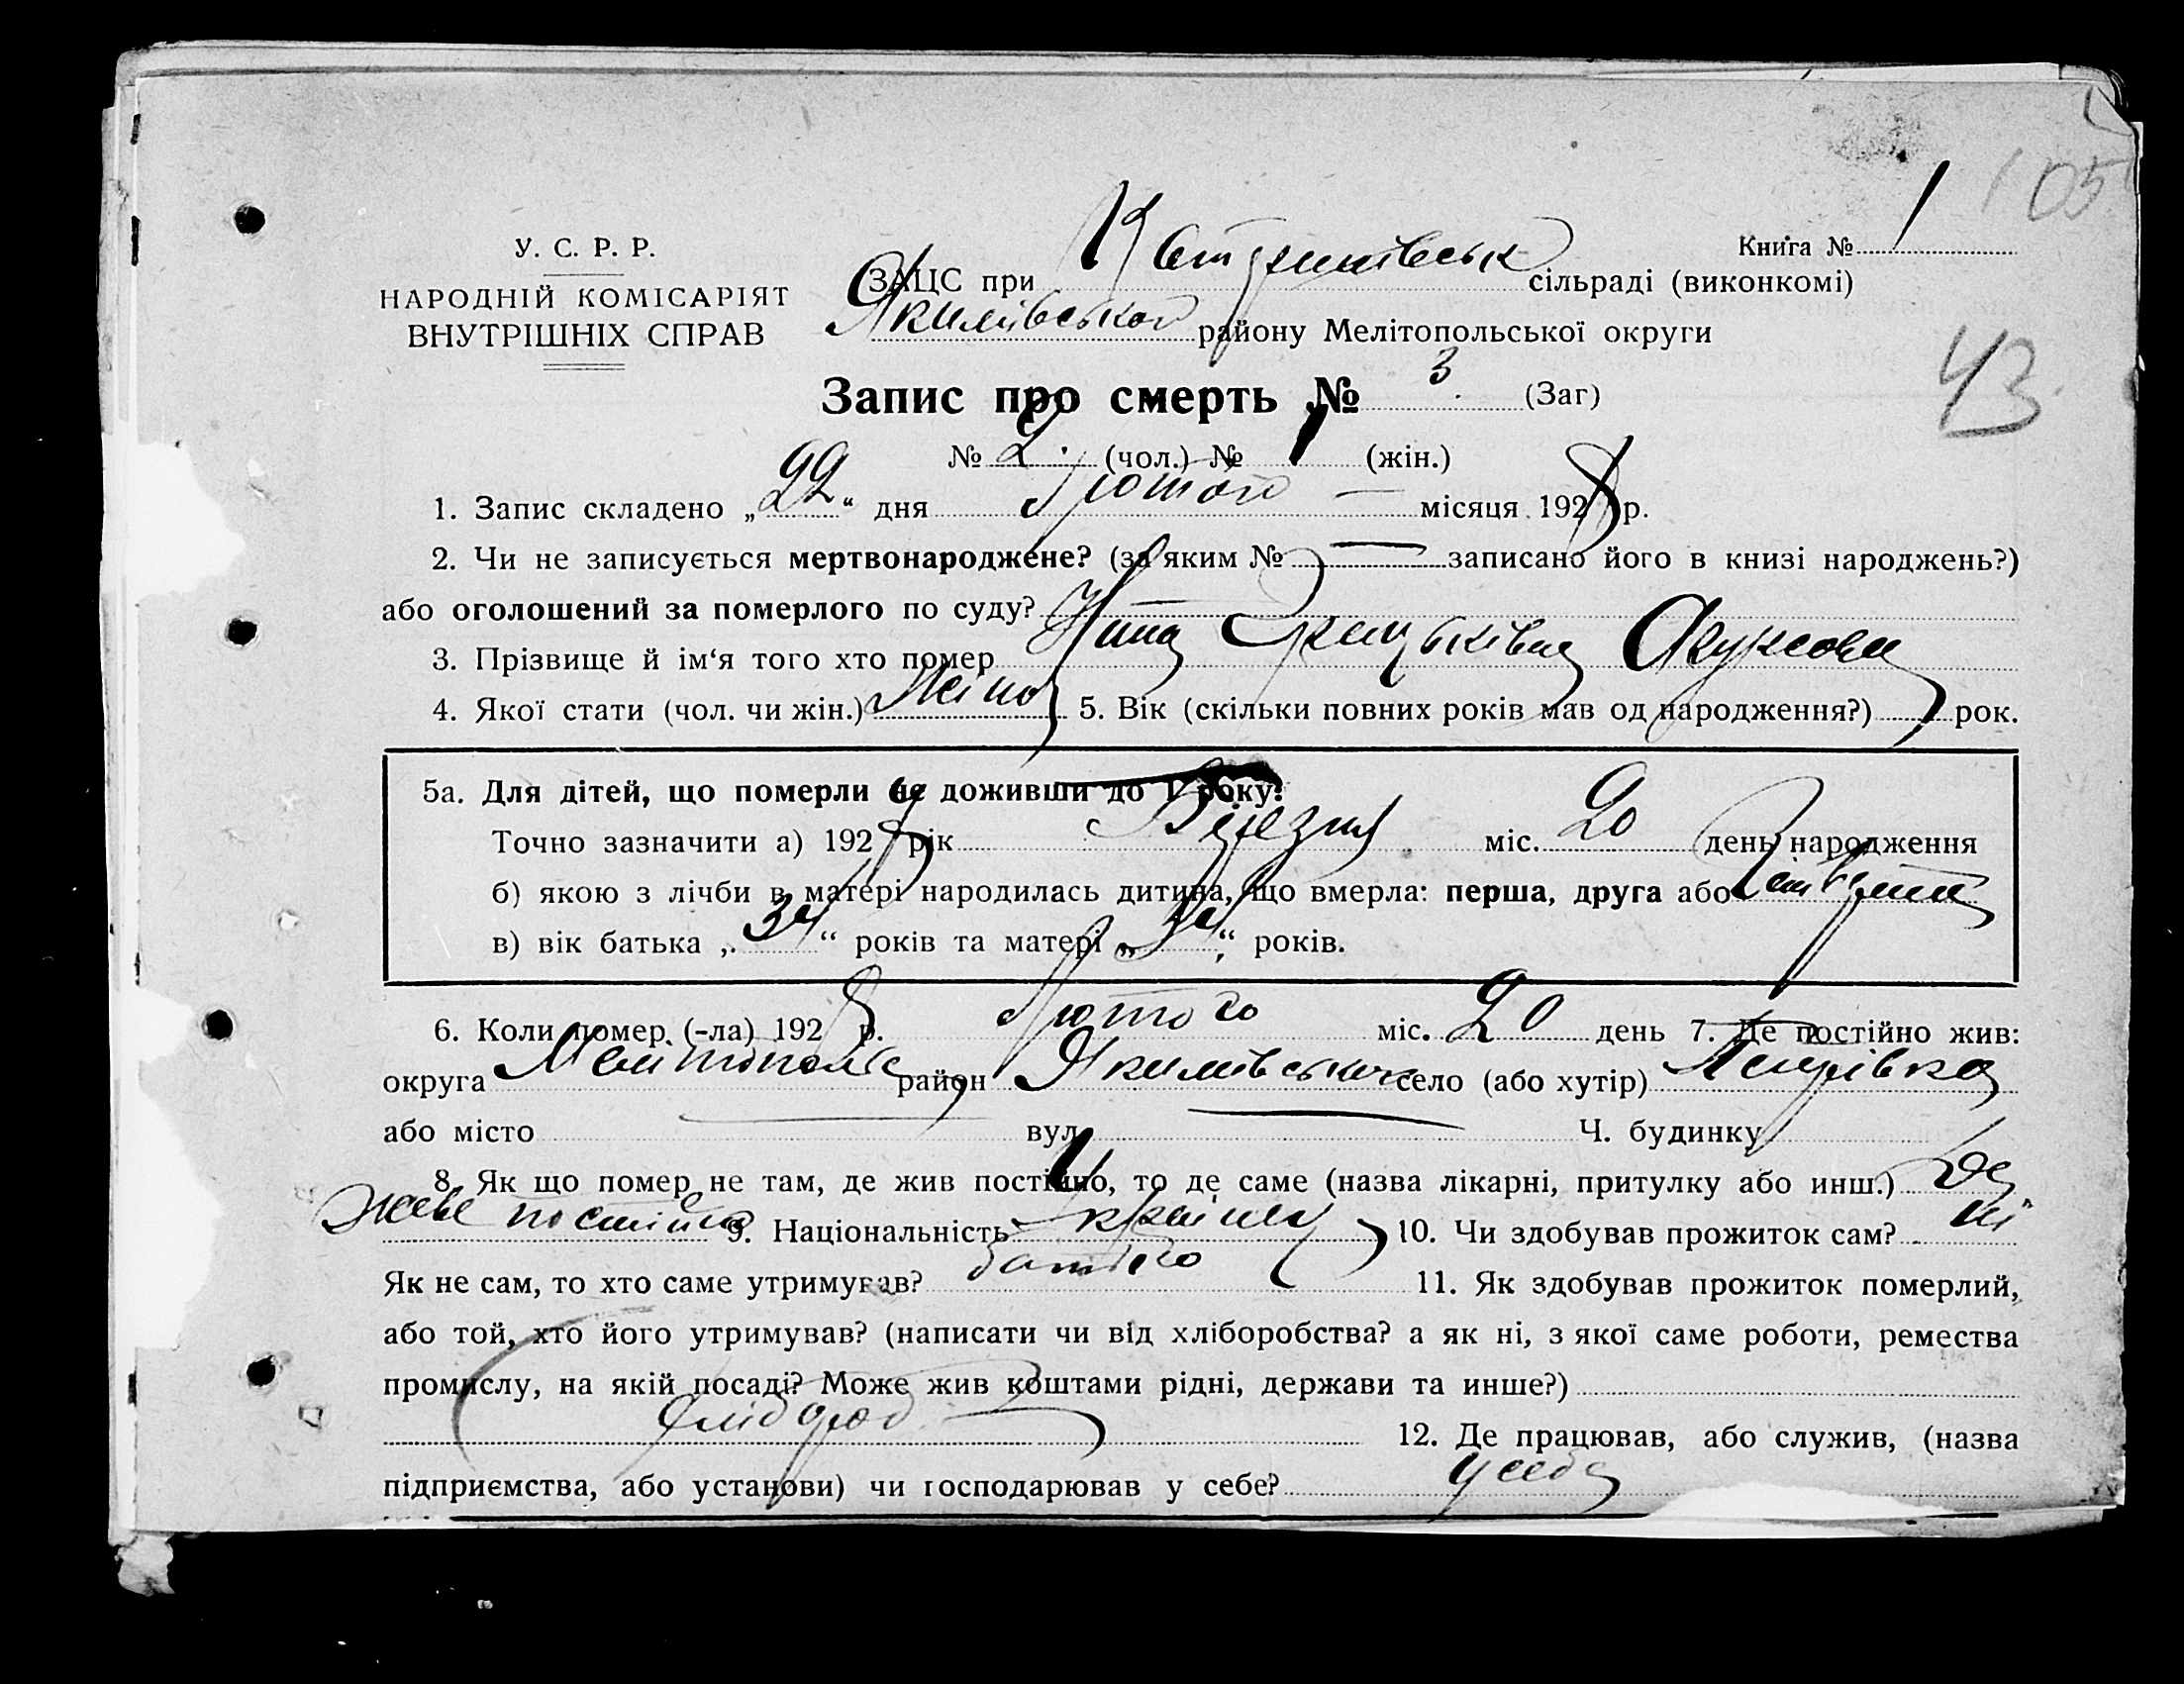 105
У. С. Р. Р.
НАРОДНІЙ КОМІСАРІЯТ
ВНУТРІШНІХ СПРАВ
Книга № 1
ЗАЦС при сільраді (виконкомі)
Якимівської району Мелітопольської округи
43
Запис про смерть № 3 (Заг)
№ 2 (чол.) № 1 (жін.)
1. Запис складено „22“ дня Лютого — місяця 1928 р.
2. Чи не записується мертвонароджене? (за яким № — записано його в книзі народжень?)
або оголошений за померлого по суду? —
3. Прізвище й ім‘я того хто помер
4. Якої стати (чол. чи жін.) Жіноч 5. Вік (скільки повних років мав од народження?) рок.
5а. Для дітей, що померли не доживши до 1 року:
Точно зазначити а) 192 рік Березня міс. 20 день народження
б) якою з лічби в матері народилась дитина, що вмерла: перша, друга або четверта
в) вік батька „34“ років та матері „34“ років.
6. Коли помер (-ла) 1928 р. Лютого міс. 20 день 7. Де постійно жив:
округа Мелітополь район Якимівськ село (або хутір)
або місто — вул. — Ч. будинку
8. Як що помер не там, де жив постійно, то де саме (назва лікарні, притулку або инш.) Де
живе постійно 9. Національність Україн 10. Чи здобував прожиток сам? ні
Як не сам, то хто саме утримував? батько 11. Як здобував прожиток померлий,
або той, хто його утримував? (написати чи від хліборобства? а як ні, з якої саме роботи, ремества
промислу, на якій посаді? Може жив коштами рідні, держави та инше?)
хлібороб 12. Де працював, або служив, (назва
підприємства, або установи) чи господарював у себе? у себе